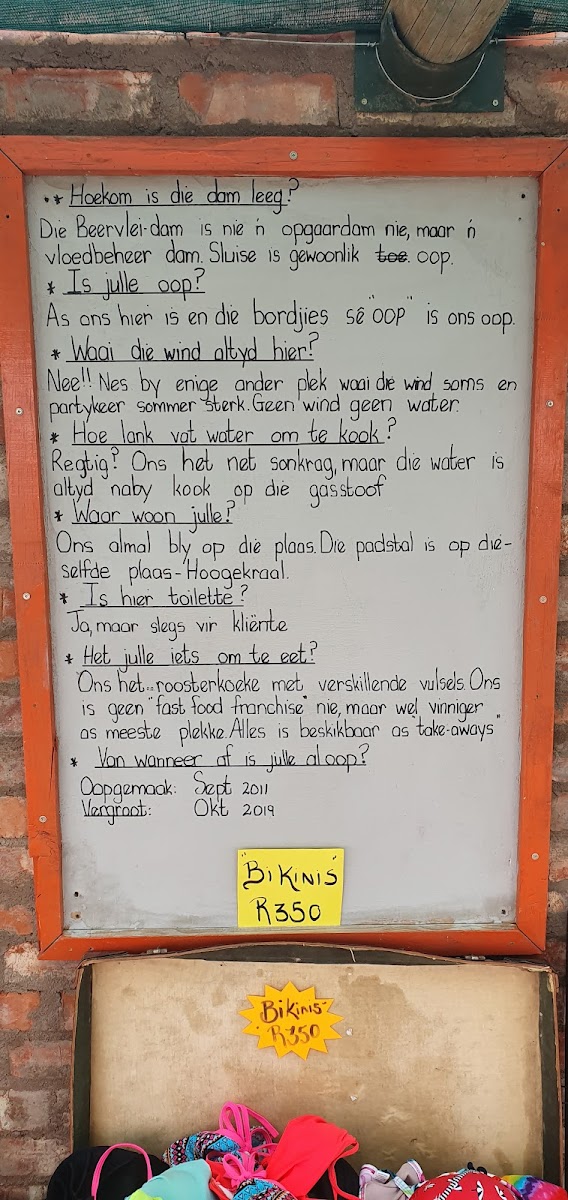 ** Hoekom is die dam leeg?
Die Beervlei-dam is nie ń opgaardam nie, maar ń
vloedbeheer dam. Sluise is gewoonlik toe. oop.
* Is julle oop?
As ons hier is en die bordjies sê "OOP" is ons oop.
* Waai die wind altyd hier?
Nee!! Nes by enige ander plek waai die wind soms en
partykeer sommer sterk. Geen wind geen water.
* Hoe lank vat water om te kook?
Regtig? Ons het net sonkrag, maar die water is
altyd naby kook op die gasstoof
* Waar woon julle?
Ons almal bly op die plaas. Die padstal is op die-
selfde plaas - Hoogekraal.
* Is hier toilette?
Ja, maar slegs vir kliënte
* Het julle iets om te eet?
Ons het .. roosterkoeke met verskillende vulsels. Ons
is geen "fast food franchise" nie, maar wel vinniger
as meeste plekke. Alles is beskikbaar as "take-aways"
* Van wanneer af is julle al oop?
Oopgemaak: Sept 2011
Vergroot: Okt 2019
"BiKiNiS"
R350
BiKiNiS
R350